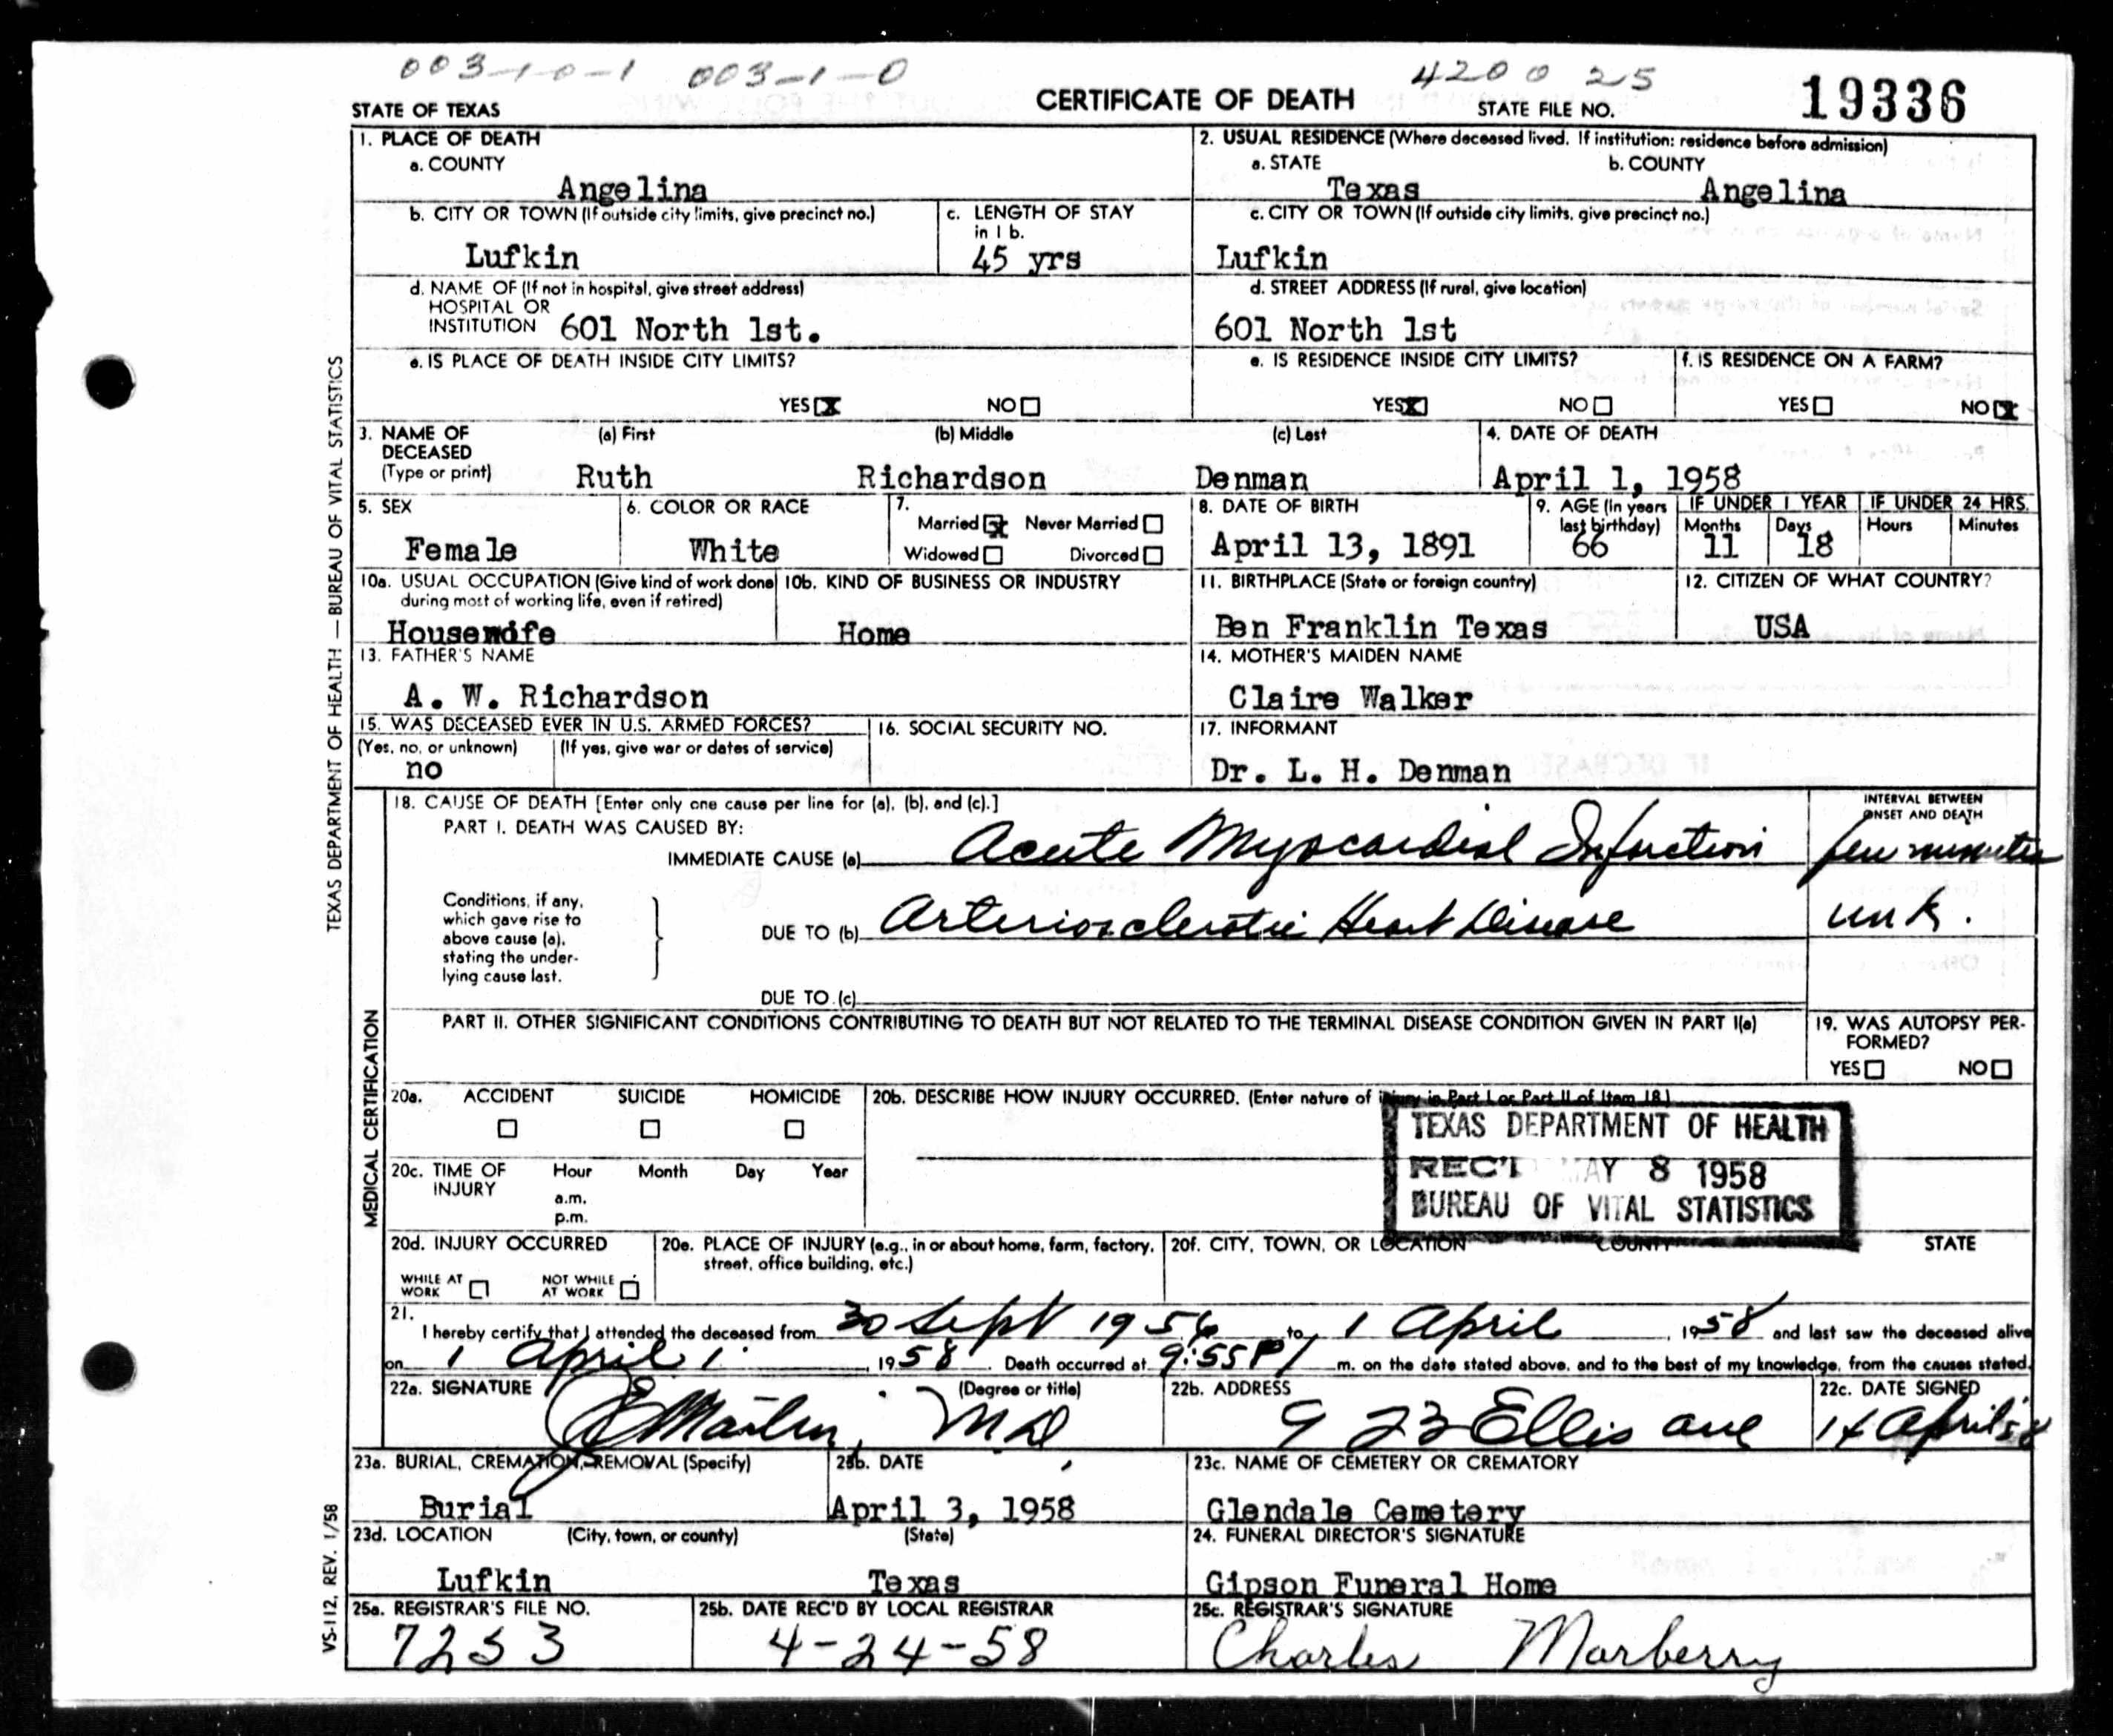 003-1-0-1 003-1-0 4200 25
STATE OF TEXAS CERTIFICATE OF DEATH STATE FILE NO. 19336
1. PLACE OF DEATH
a. COUNTY
Angelina
2. USUAL RESIDENCE (Where deceased lived. If institution: residence before admission)
a. STATE b. COUNTY
Texas Angelina
b. CITY OR TOWN (If outside city limits, give precinct no.)
Lufkin
c. LENGTH OF STAY
in 1 b.
45 yrs
c. CITY OR TOWN (If outside city limits, give precinct no.)
Lufkin
d. NAME OF (If not in hospital, give street address)
HOSPITAL OR
INSTITUTION 601 North 1st.
d. STREET ADDRESS (If rural, give location)
601 North 1st
e. IS PLACE OF DEATH INSIDE CITY LIMITS?
YES X NO
e. IS RESIDENCE INSIDE CITY LIMITS?
YES X NO
f. IS RESIDENCE ON A FARM?
YES NO X
3. NAME OF (a) First (b) Middle (c) Last
DECEASED
(Type or print) Ruth Richardson Denman
4. DATE OF DEATH
April 1, 1958
5. SEX
Female
6. COLOR OR RACE
White
7.
Married X Never Married
Widowed Divorced
8. DATE OF BIRTH
April 13, 1891
9. AGE (In years
last birthday)
66
IF UNDER 1 YEAR IF UNDER 24 HRS.
Months Days Hours Minutes
11 18
10a. USUAL OCCUPATION (Give kind of work done
during most of working life, even if retired)
Housewife
10b. KIND OF BUSINESS OR INDUSTRY
Home
11. BIRTHPLACE (State or foreign country)
Ben Franklin Texas
12. CITIZEN OF WHAT COUNTRY?
USA
13. FATHER'S NAME
A. W. Richardson
14. MOTHER'S MAIDEN NAME
Claire Walker
15. WAS DECEASED EVER IN U.S. ARMED FORCES?
(Yes, no, or unknown) (If yes, give war or dates of service)
no
16. SOCIAL SECURITY NO.
17. INFORMANT
Dr. L. H. Denman
18. CAUSE OF DEATH [Enter only one cause per line for (a), (b), and (c).]
PART I. DEATH WAS CAUSED BY:
IMMEDIATE CAUSE (a) Acute Myocardial Infarction
INTERVAL BETWEEN
ONSET AND DEATH
few minutes
Conditions, if any,
which gave rise to
above cause (a),
stating the under-
lying cause last.
DUE TO (b) Arteriosclerotic Heart Disease unk.
DUE TO (c)
PART II. OTHER SIGNIFICANT CONDITIONS CONTRIBUTING TO DEATH BUT NOT RELATED TO THE TERMINAL DISEASE CONDITION GIVEN IN PART I(a)
19. WAS AUTOPSY PER-
FORMED?
YES NO
20a. ACCIDENT SUICIDE HOMICIDE
20b. DESCRIBE HOW INJURY OCCURRED. (Enter nature of injury in Part I or Part II of Item 18.)
TEXAS DEPARTMENT OF HEALTH
REC'D MAY 8 1958
BUREAU OF VITAL STATISTICS
20c. TIME OF Hour Month Day Year
INJURY
a.m.
p.m.
20d. INJURY OCCURRED
WHILE AT
WORK
NOT WHILE
AT WORK
20e. PLACE OF INJURY (e.g., in or about home, farm, factory,
street, office building, etc.)
20f. CITY, TOWN, OR LOCATION COUNTY STATE
21.
I hereby certify that I attended the deceased from 30 Sept 1956 to 1 April, 1958 and last saw the deceased alive
on 1 April, 1958. Death occurred at 9:55 P m. on the date stated above, and to the best of my knowledge, from the causes stated.
22a. SIGNATURE (Degree or title)
Martin, MD
22b. ADDRESS
923 Ellis ave
22c. DATE SIGNED
14 April 58
23a. BURIAL, CREMATION, REMOVAL (Specify)
Burial
23b. DATE
April 3, 1958
23c. NAME OF CEMETERY OR CREMATORY
Glendale Cemetery
23d. LOCATION (City, town, or county) (State)
Lufkin Texas
24. FUNERAL DIRECTOR'S SIGNATURE
Gipson Funeral Home
25a. REGISTRAR'S FILE NO.
7253
25b. DATE REC'D BY LOCAL REGISTRAR
4-24-58
25c. REGISTRAR'S SIGNATURE
Charles Marberry
TEXAS DEPARTMENT OF HEALTH — BUREAU OF VITAL STATISTICS
MEDICAL CERTIFICATION
VS-112, REV. 1/58